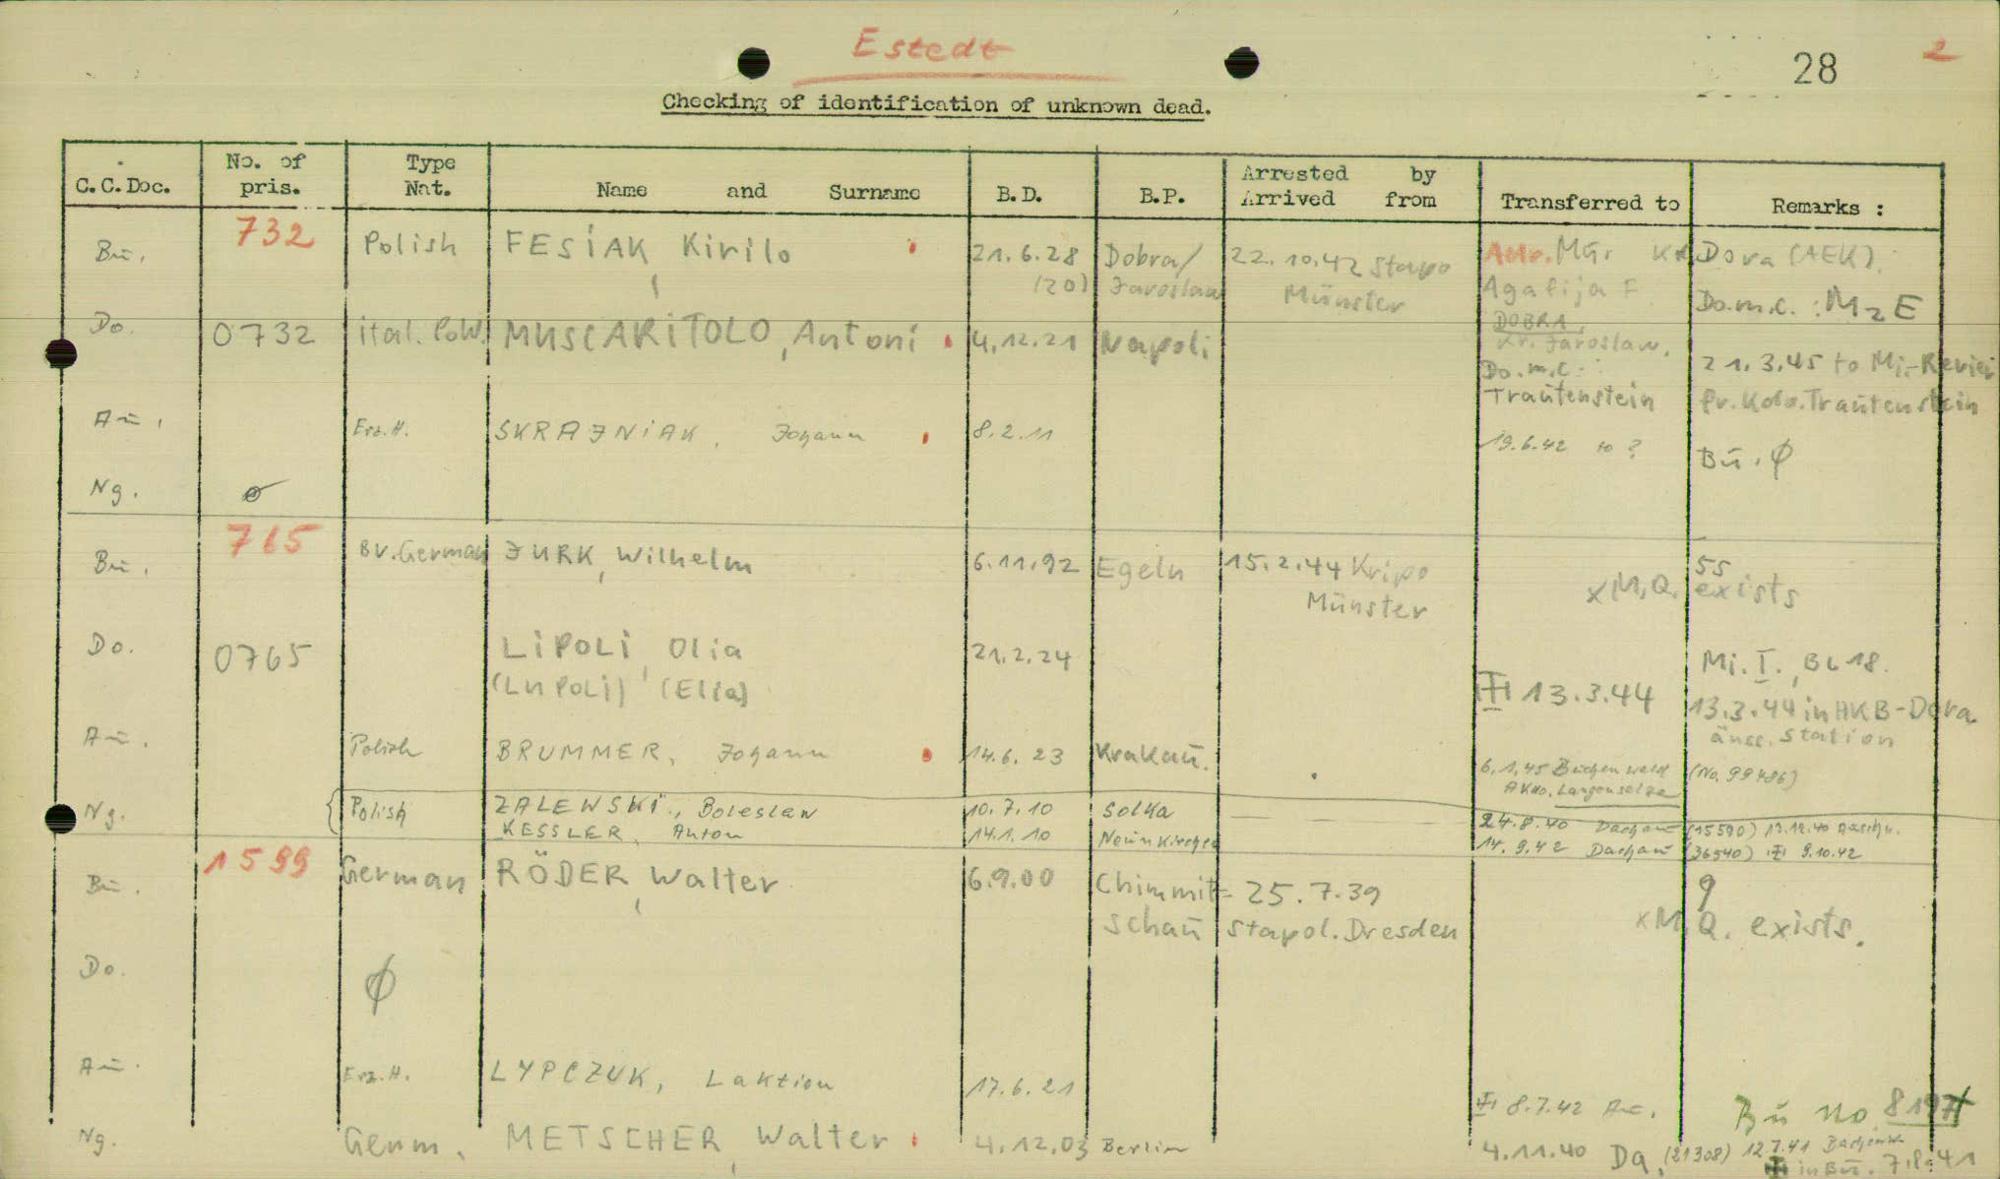 Estedt
28
2
Checking of identification of unknown dead.
C.C.Doc. No. of pris. Type Nat. Name and Surname B.D. B.P. Arrested by Arrived from Transferred to Remarks :
Bū. 732 Polish FESIAK, Kirilo 21.6.28 Dobra/ 22.10.42 Stapo Dora (AEK).
(20) Jaroslau Münster Agafija F. Do.m.c. : M2E
DOBRA,
Kr. Jaroslaw.
Do. 0732 ital. PoW. MUSCARITOLO, Antoni 4.12.21 Napoli Do.m.c. : 21.3.45 to Mi.-Revier
Trautenstein fr. Kdo. Trautenstein
Aū. Erz.H. SKRAJNIAK, Johann 8.2.11 19.6.42 to ? Bū. Ø
Ng. ø
Bū. 765 BV. German JURK, Wilhelm 6.11.92 Egeln 15.2.44 Kripo 55
Münster xM.Q. exists
Do. 0765 LIPOLI, Olia 21.2.24 Mi. I., BL 18.
(LUPOLI) (Elia) 13.3.44 13.3.44 in HKB-Dora
äuss. Station
Aū. Polish BRUMMER, Johann 14.6.23 Krakau. 6.1.45 Buchenwald (No. 99486)
AKdo. Langensalza
Ng. Polish ZALEWSKI, Boleslaw 10.7.10 Solka 24.8.40 Dachau (15590) 12.12.40
KESSLER, Anton 14.1.10 Neunkirchen 14.9.42 Dachau (36540) 9.10.42
Bū. 1599 German RÖDER, Walter 6.9.00 Chimmit= 25.7.39 9
schau Stapol. Dresden xM.Q. exists.
Do. Ø
Aū. Erz.H. LYPCZUK, Laktion 17.6.21 8.7.42 Au. Bū no. 8197
Ng. Germ. METSCHER, Walter 4.12.03 Berlin 4.11.40 Da. (21308) 12.7.41 Buchenw.
in Bū. 7.8.41